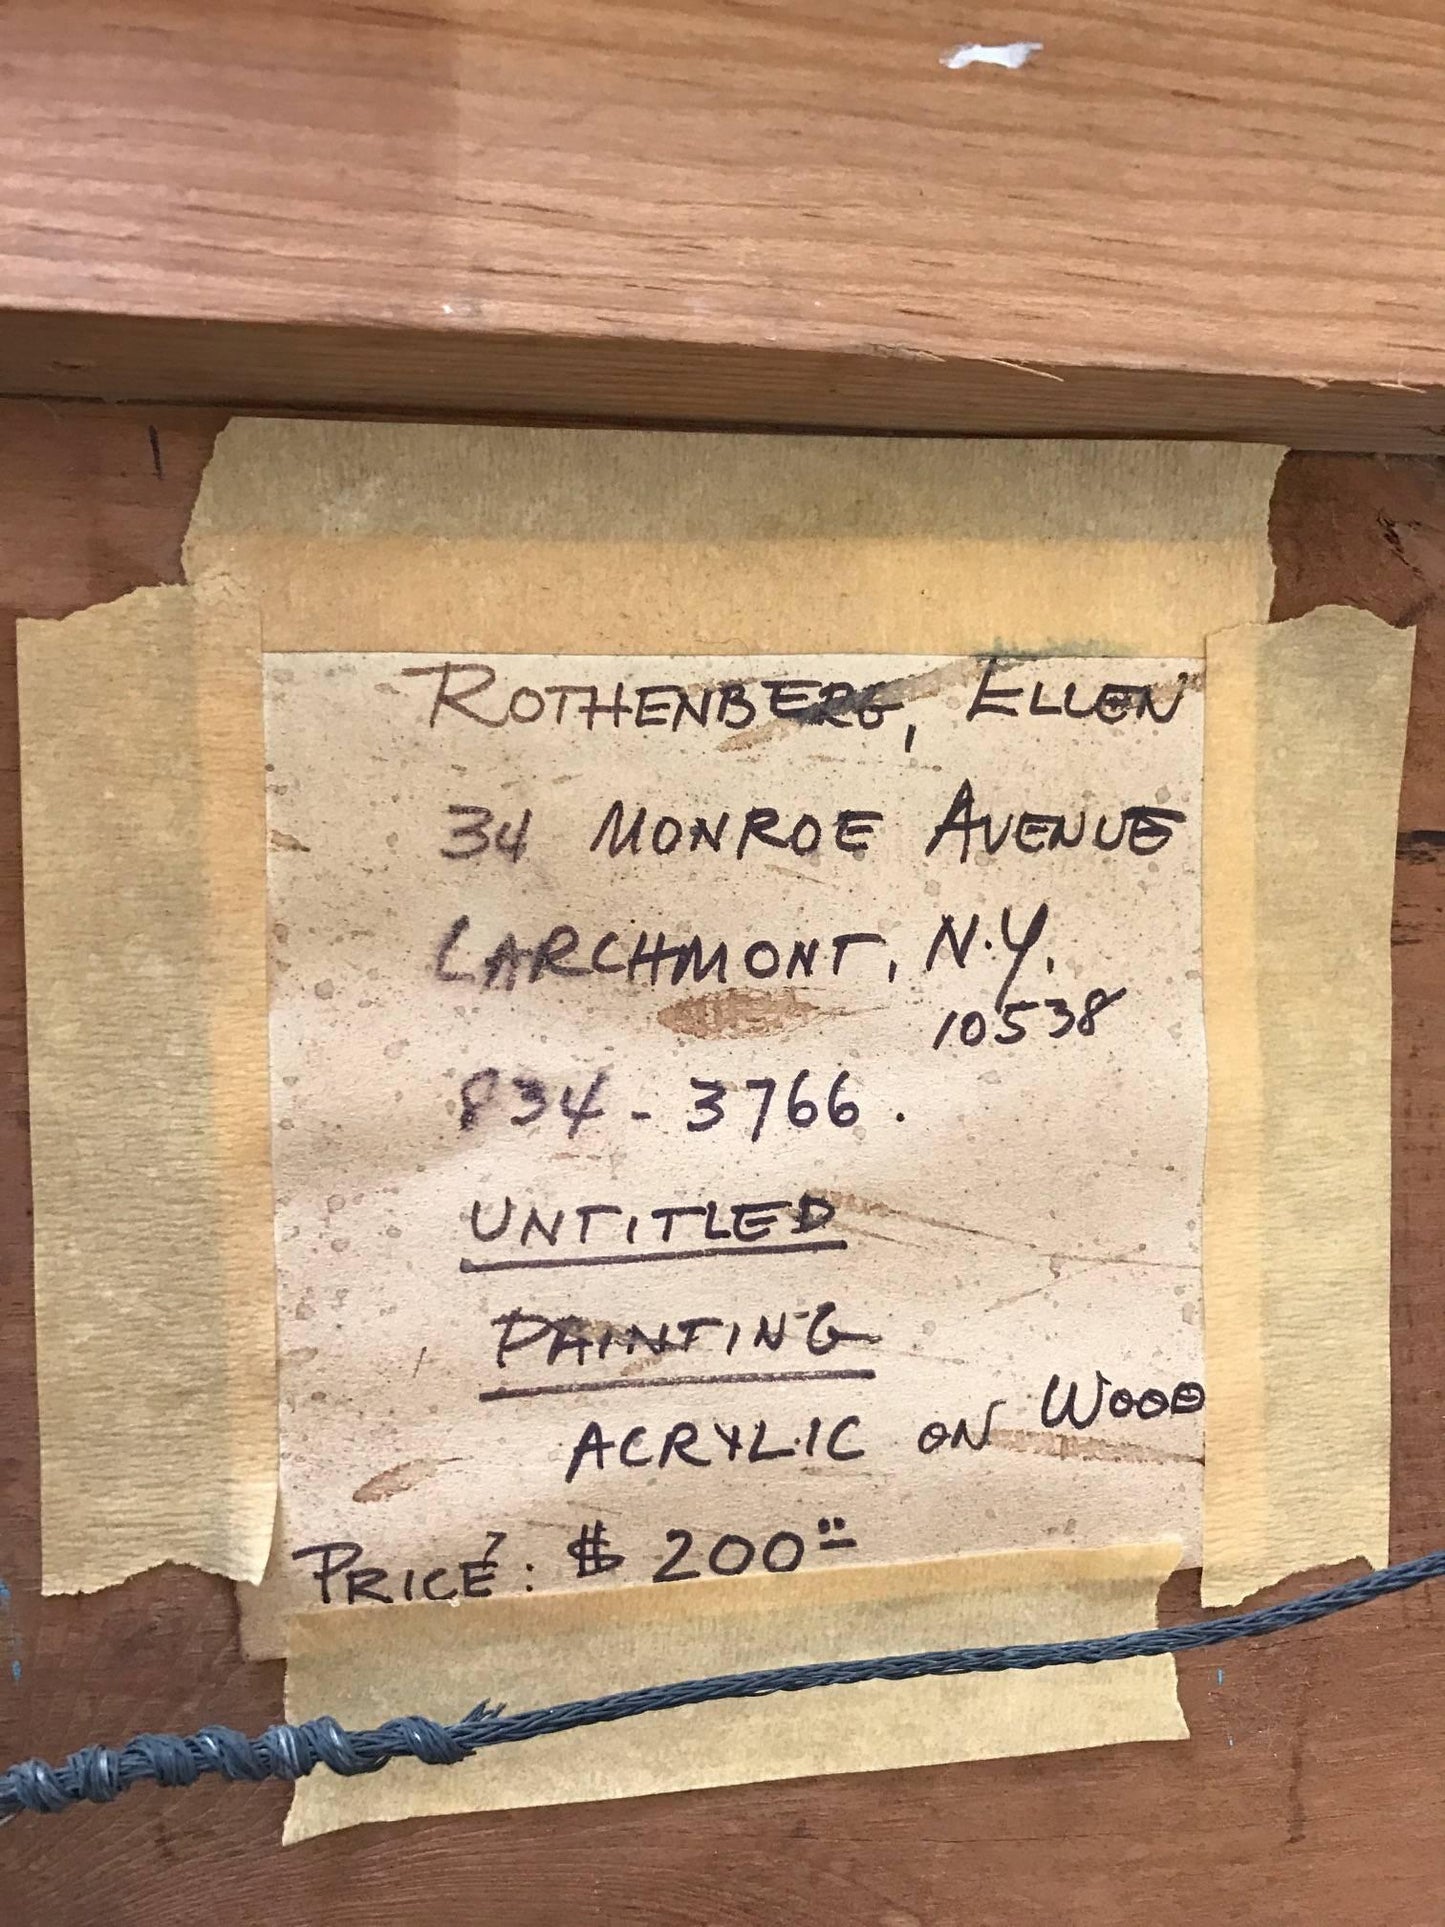 ROTHENBERG, ELLEN
34 MONROE AVENUE
LARCHMONT, N.Y.
10538
834-3766.
UNTITLED
PAINTING
ACRYLIC ON WOOD
PRICE: $200.00